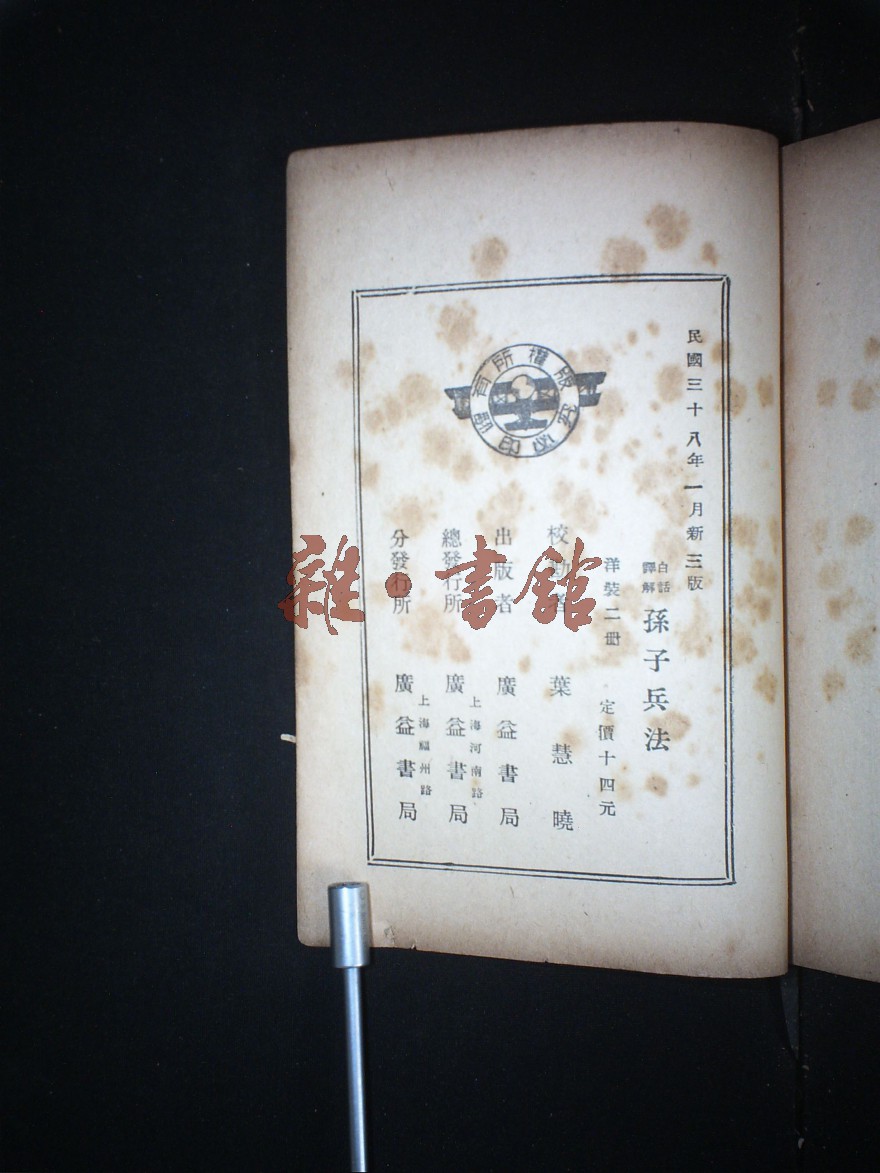 民國三十八年一月新三版
白話譯解 孫子兵法
洋裝二冊 定價十四元
校勘者 葉慧曉
出版者 廣益書局
總發行所 上海河南路 廣益書局
分發行所 上海福州路 廣益書局
版權所有
翻印必究
雜·書館